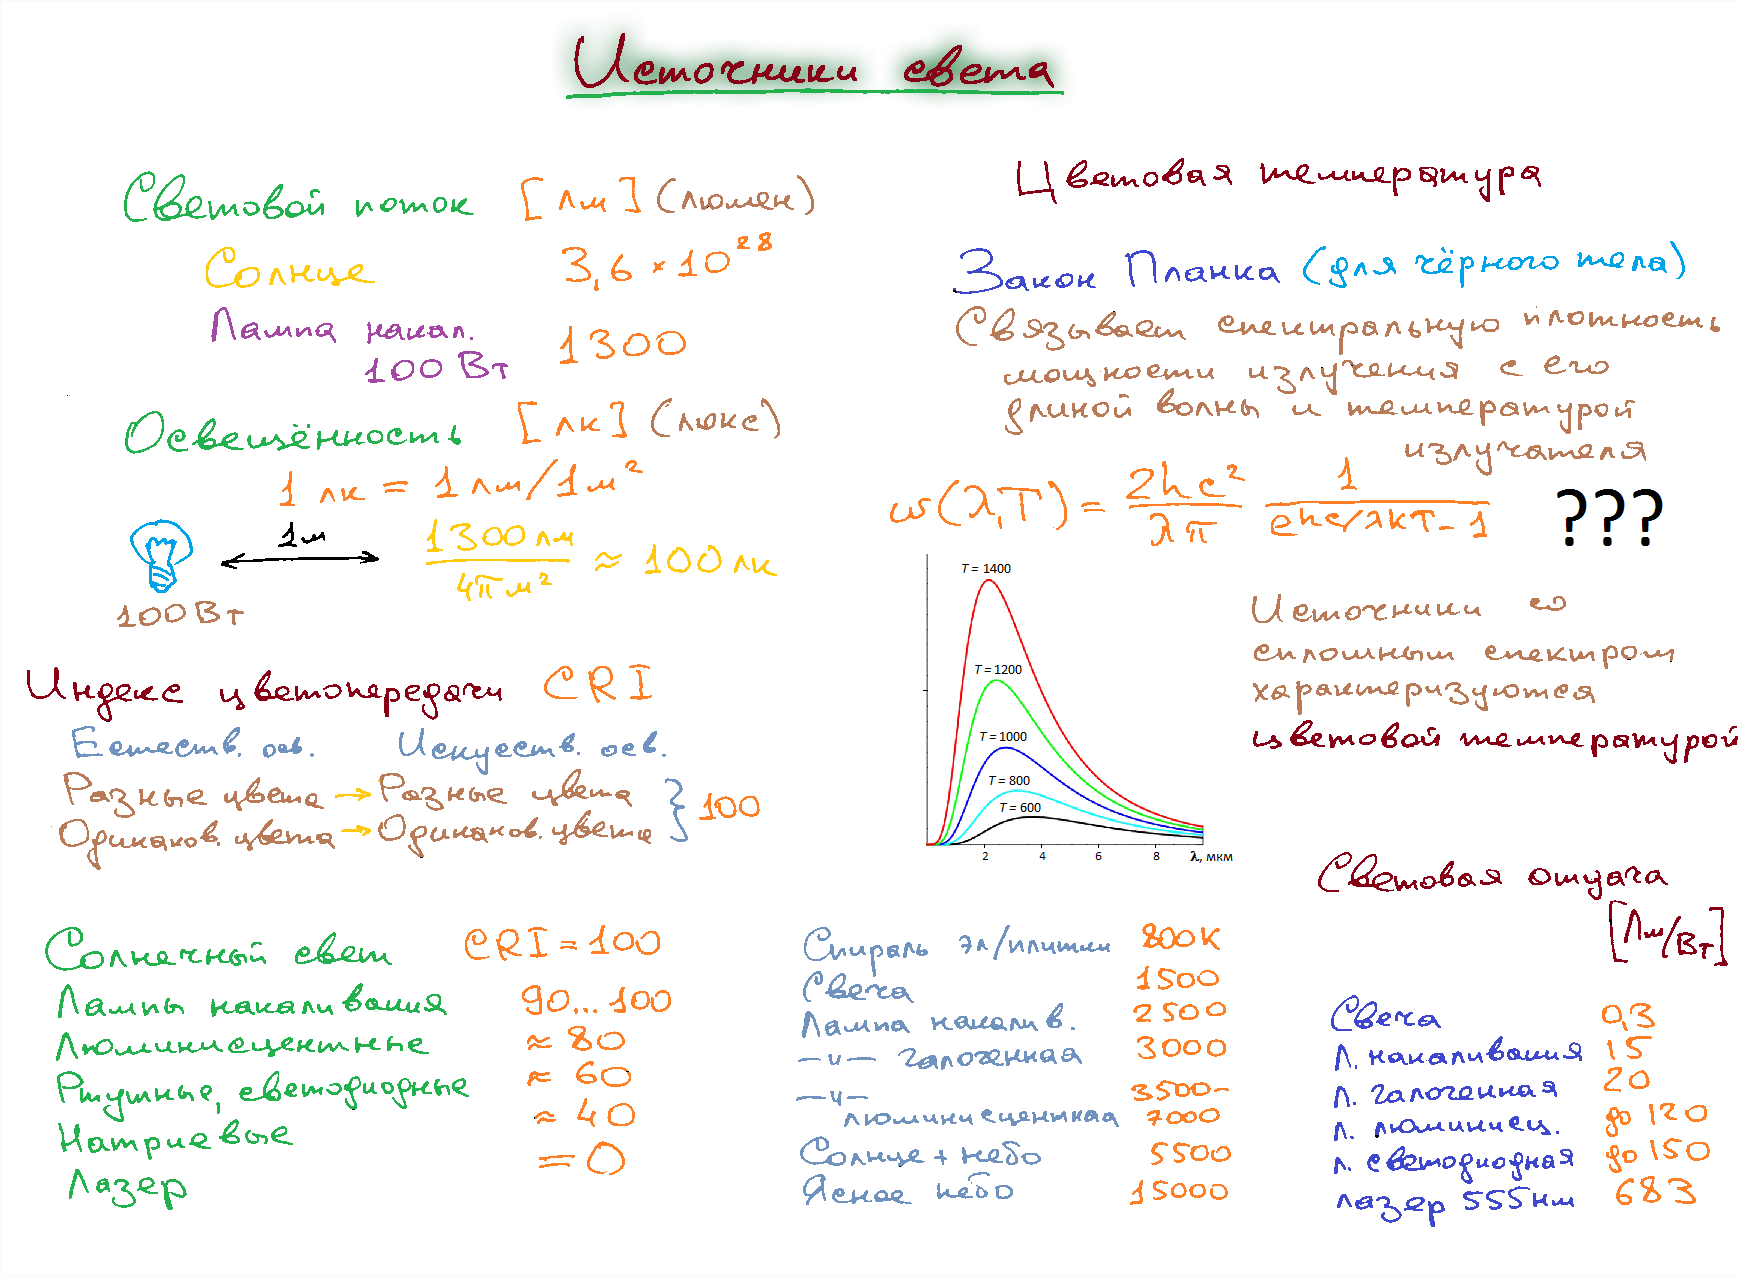 Источники света
Световой поток [лм] (люмен)
Солнце 3,6 × 10²⁸
Лампа накал. 1300
100 Вт
Освещённость [лк] (люкс)
1 лк = 1 лм/1м²
1м 1300 лм / 4π м² ≈ 100 лк
100 Вт
Индекс цветопередачи CRI
Естеств. осв. Искуств. осв.
Разные цвета → Разные цвета } 100
Одинаков. цвета → Одинаков. цвета
Солнечный свет CRI = 100
Лампы накаливания 90...100
Люминисцентные ≈ 80
Ртутные, светодиодные ≈ 60
Натриевые ≈ 40
Лазер = 0
Цветовая температура
Закон Планка (для чёрного тела)
Связывает спектральную плотность
мощности излучения с его
длиной волны и температурой
излучателя
w(λ,T) = 2hc²/λπ 1/ehc/λkT-1 ???
T = 1400
T = 1200
T = 1000
T = 800
T = 600
2 4 6 8 λ, мкм
Источники со
сплошным спектром
характеризуются
цветовой температурой
Спираль эл/плитки 800К
Свеча 1500
Лампа накалив. 2500
—и— галогенная 3000
—и— 3500-
люминисцентная 7000
Солнце + небо 5500
Ясное небо 15000
Световая отдача
[Лм/Вт]
Свеча 0,3
Л. накаливания 15
Л. галогенная 20
Л. люминисц. до 120
Л. светодиодная до 150
лазер 555нм 683